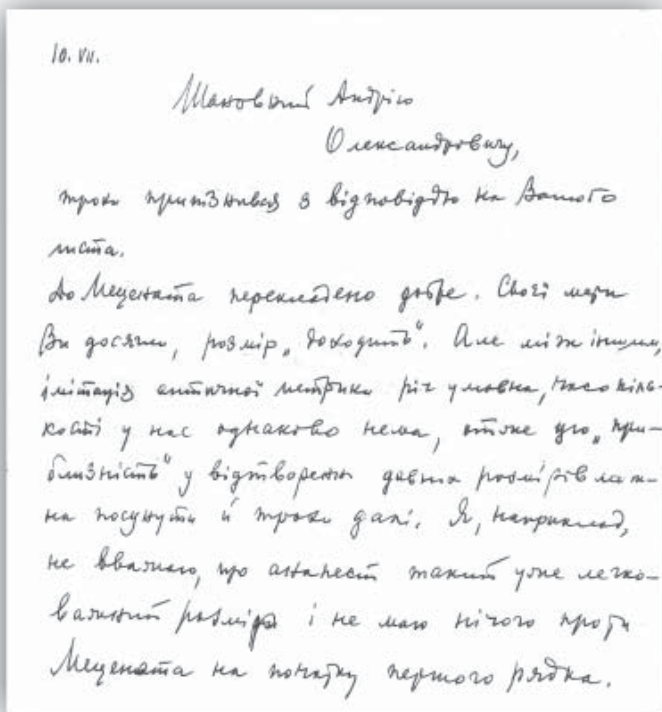 10. VII.
Шановний Андрію
Олександровичу,
трохи припізнився з відповіддю на Вашого
листа.
До Мецената перекладено добре. Своєї мети
Ви досягли, розмір „доходить“. Але між іншим,
імітація античної метрики річ умовна, часокіль-
кості у нас однаково нема, отже цю „при-
близність“ у відтворенні давніх розмірів мож-
на посунути й трохи далі. Я, наприклад,
не вважаю, що анапест такий уже легко-
важний розмір і не маю нічого проти
Мецената на початку першого рядка.